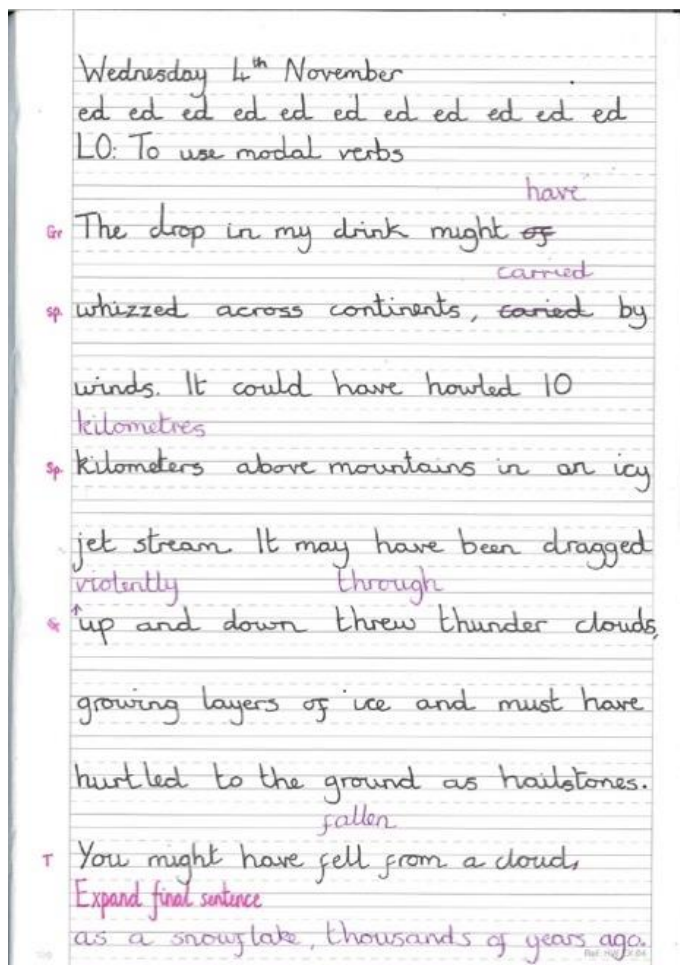 Wednesday 4th November
ed ed ed ed ed ed ed ed ed ed ed
LO: To use modal verbs
have
Gr The drop in my drink might of
carried
sp. whizzed across continents, caried by
winds. It could have howled 10
kilometres
Sp. kilometers above mountains in an icy
jet stream. It may have been dragged
violently through
up and down threw thunder clouds,
growing layers of ice and must have
hurtled to the ground as hailstones.
fallen
T You might have fell from a cloud,
Expand final sentence
as a snowflake, thousands of years ago.